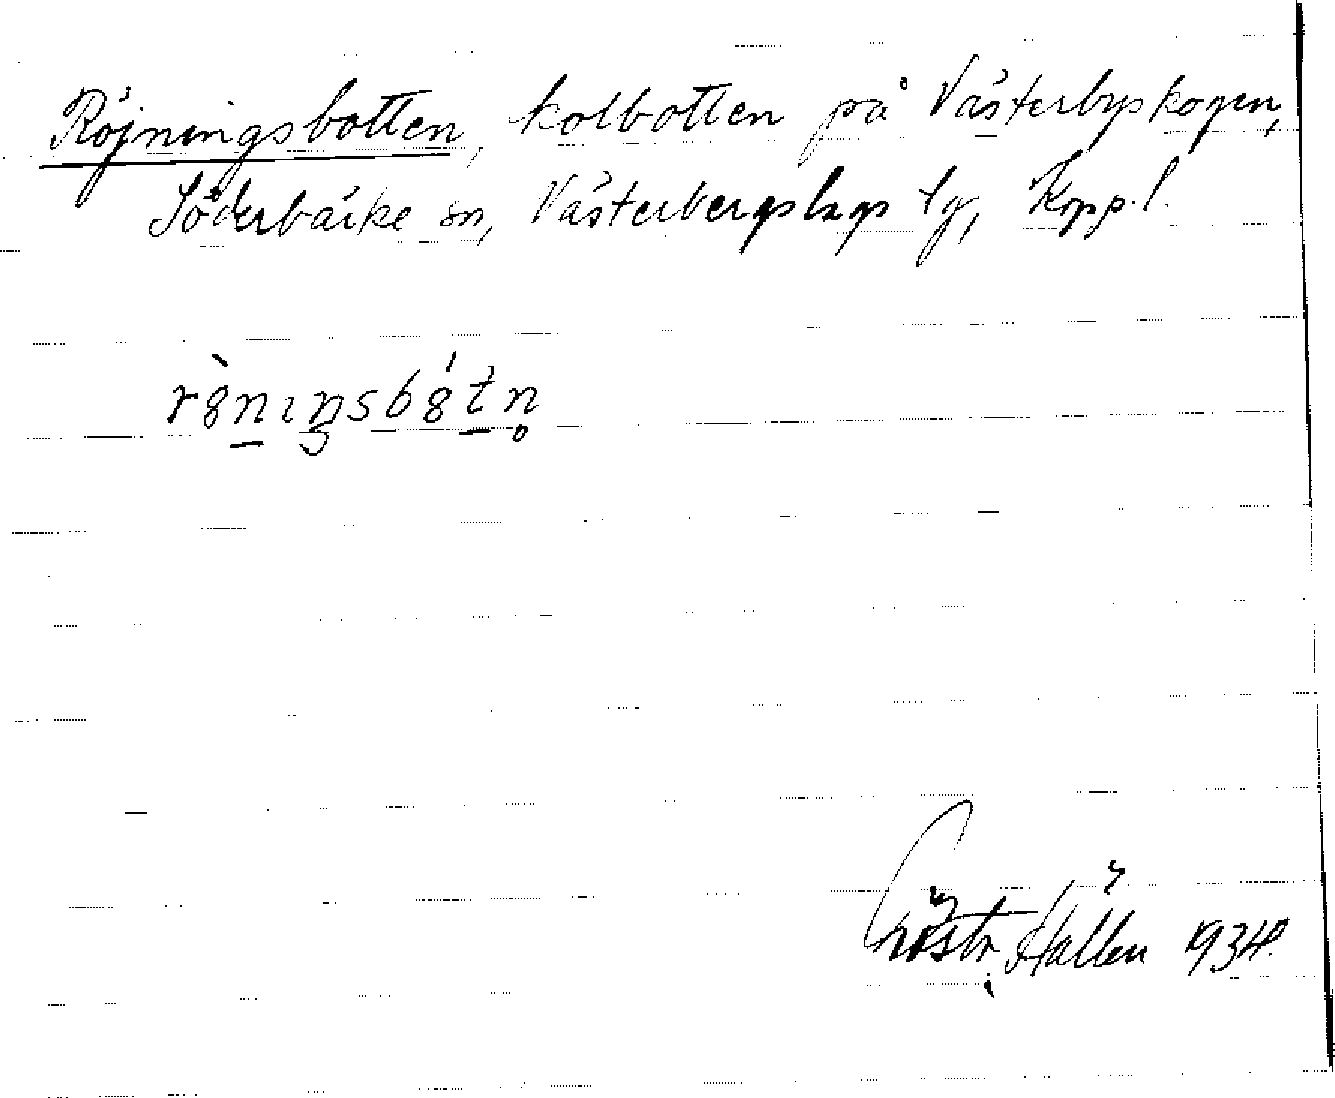 Röjningsbotten, kolbotten på Västerbyskogen,
Söderbärke sn, Västerbergslags lg, Kopp. l.
Hällen 1934.